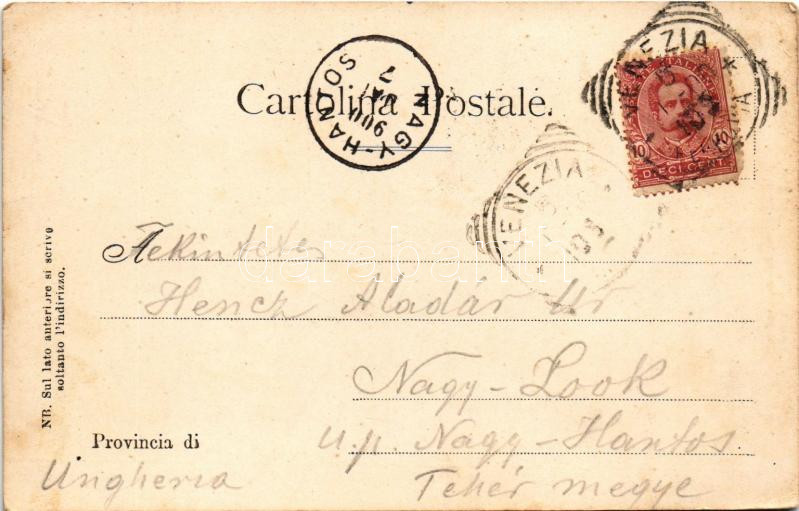 Cartolina Postale.
NAGY-HANTOS
900
VENEZIA
VENEZIA
10 10
DIECI CENT.
Tekintetes
Hencz Aladár Úr
Nagy-Look
u.p. Nagy-Hantos
Fehér megye
Provincia di
Ungheria
NB. Sul lato anteriore si scrive
soltanto l'indirizzo.
darabanth